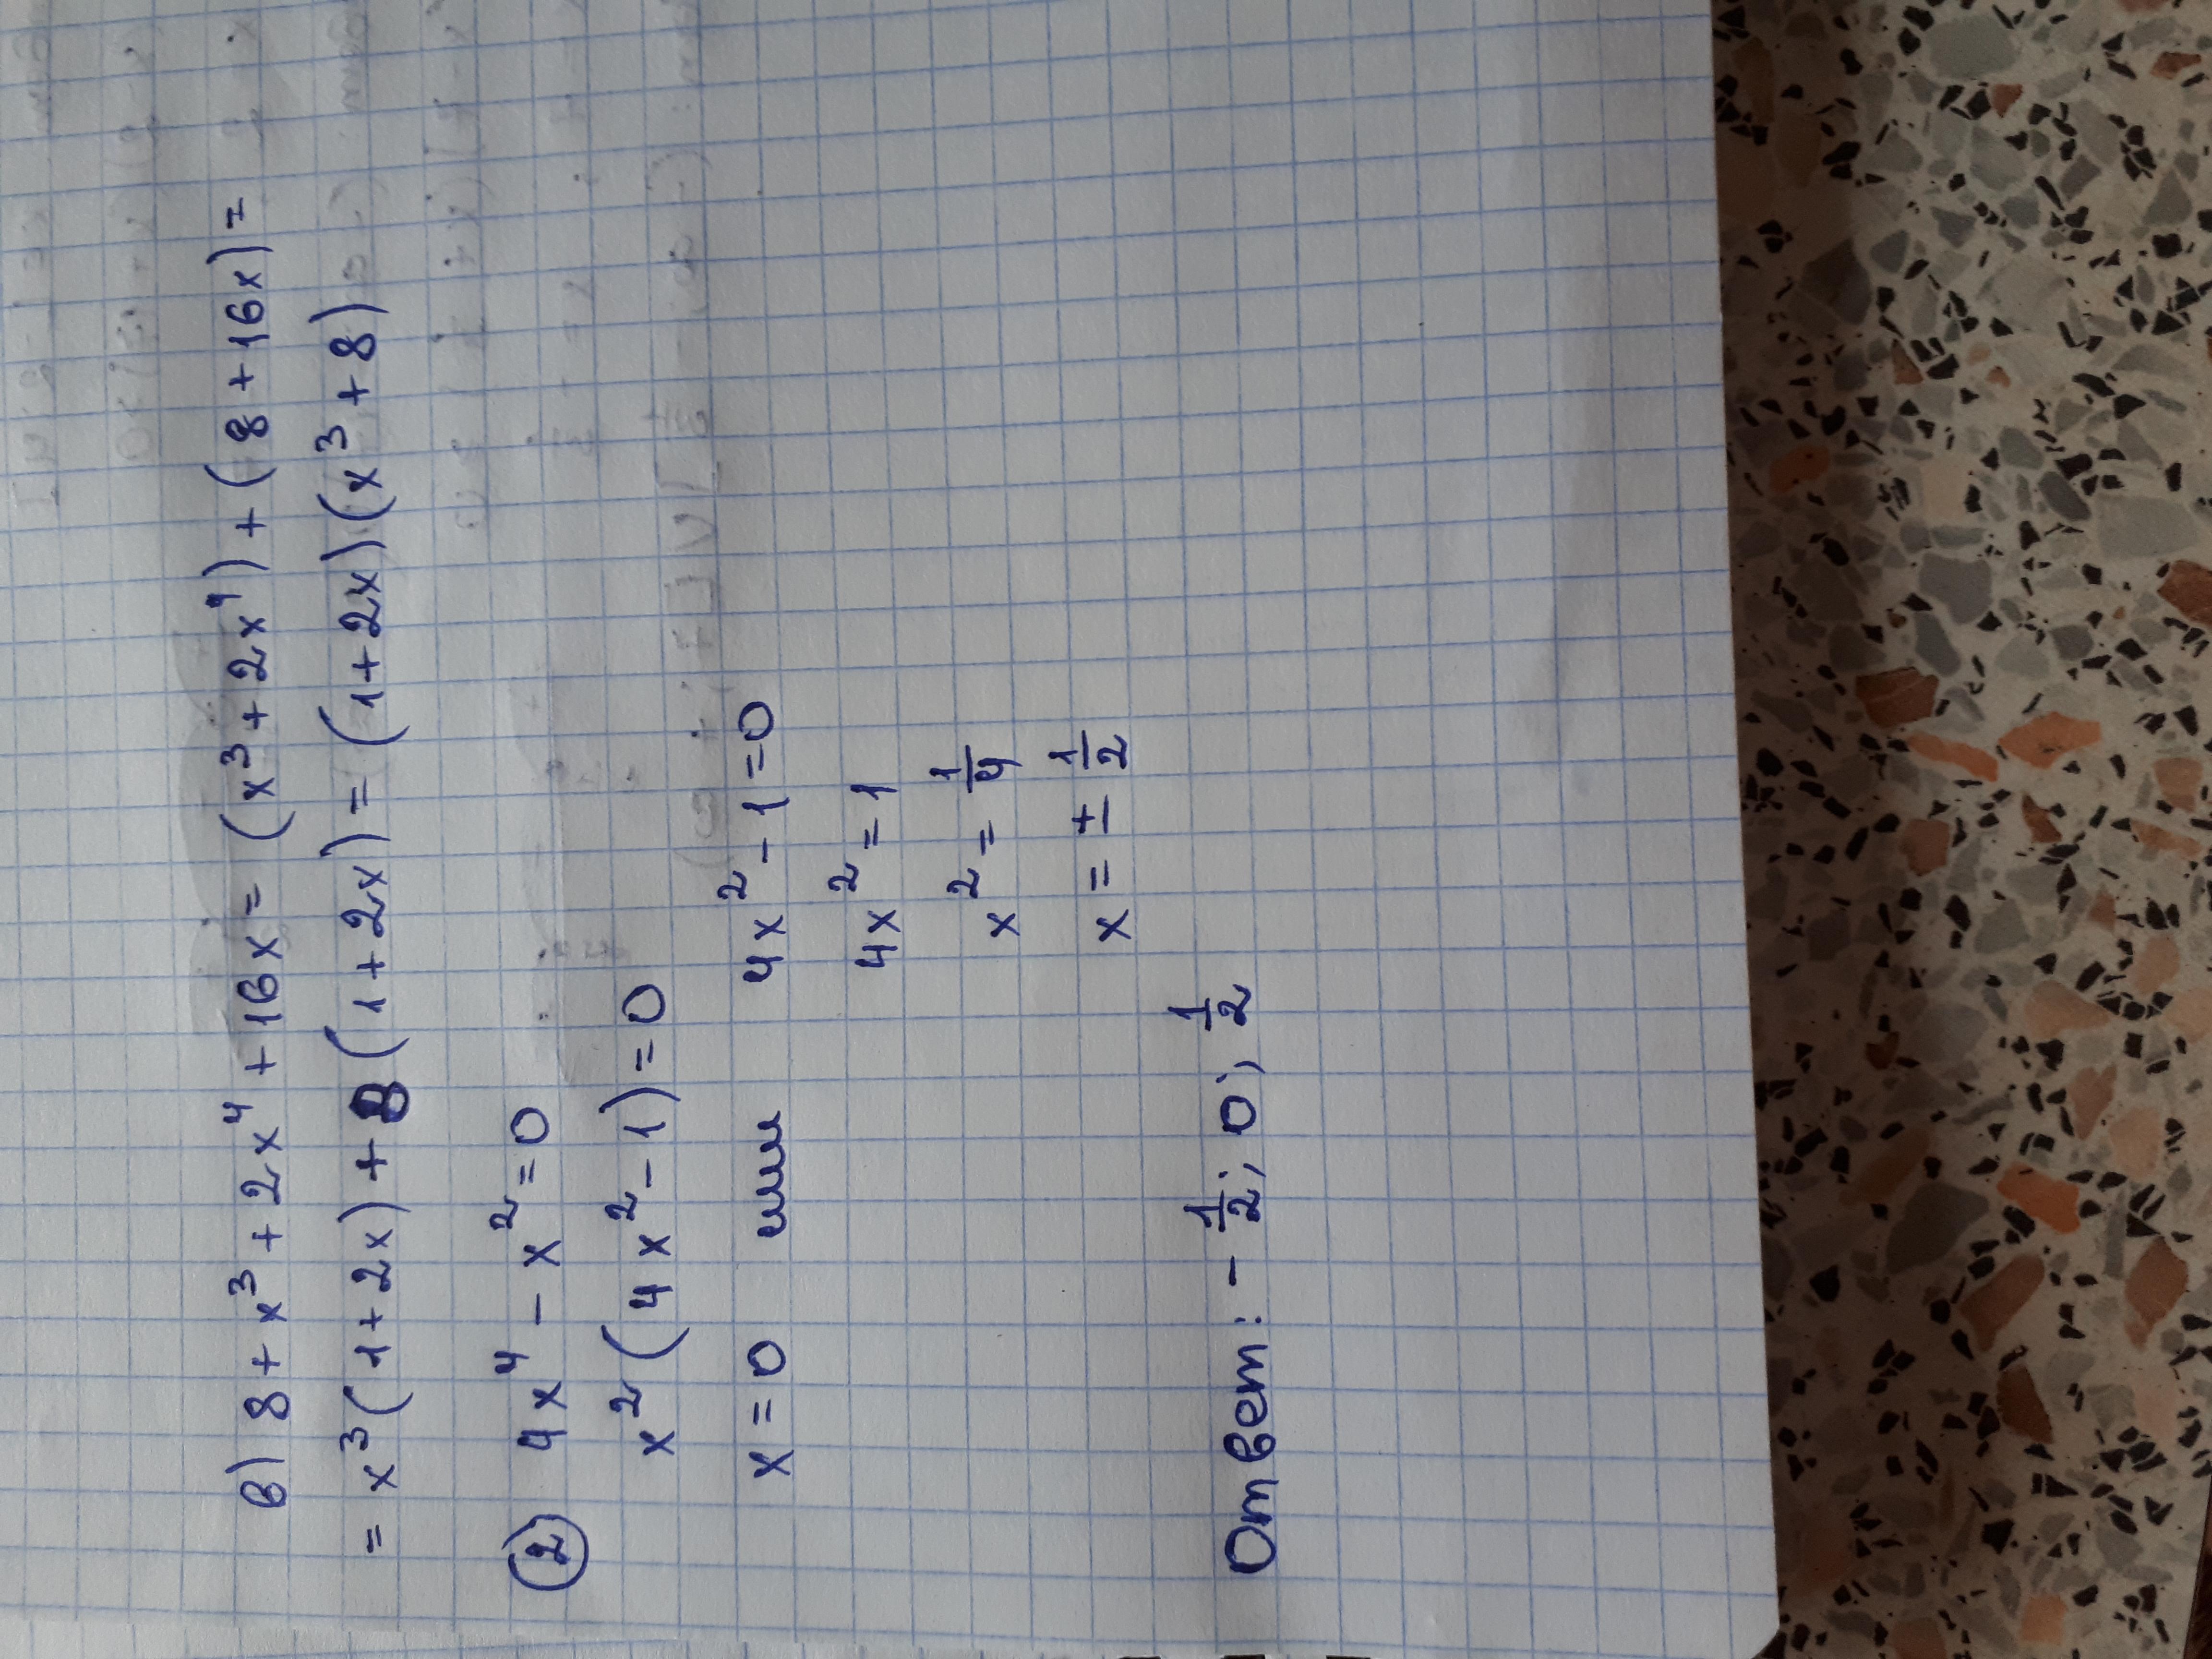 в) 8 + x³ + 2x⁴ + 16x = (x³ + 2x⁴) + (8 + 16x) =
= x³(1 + 2x) + 8(1 + 2x) = (1 + 2x)(x³ + 8)
② 4x⁴ - x² = 0
x²(4x² - 1) = 0
x = 0 или 4x² - 1 = 0
4x² = 1
x² = 1/4
x = ± 1/2
Ответ: - 1/2; 0; 1/2